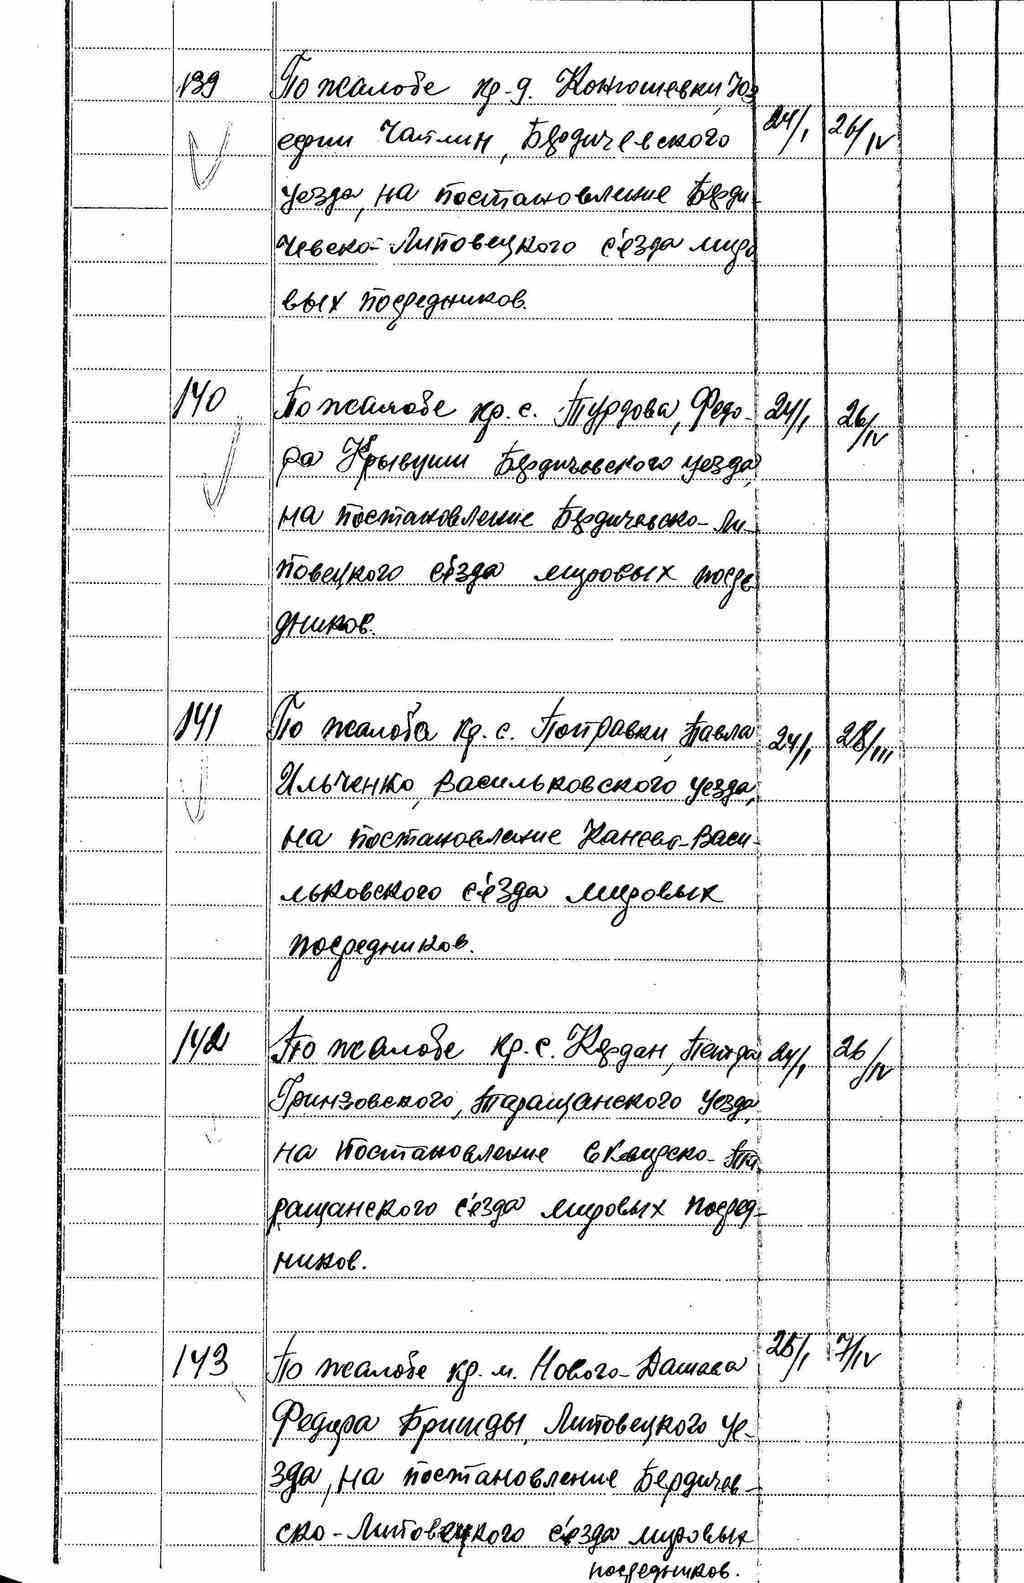 139 По жалобе кр. д. Конюшевки, Юз
ефии Чаплин, Бердичевского 24/I 26/IV
уезда, на постановление Берди-
чевско-Липовецкого с'езда миро
вых посредников.
140 По жалобе кр. с. Турдова, Федо- 24/I 26/IV
ра Крывуши Бердичевского уезда,
на постановление Бердичевско-Ли-
повецкого с'езда мировых посре
дников.
141 По жалобе кр. с. Поправки, Павла 24/I 28/III
Ильченко, Васильковского уезда,
на постановление Канево-Васи-
льковского с'езда мировых
посредников.
142 По жалобе кр. с. Кердан, Петра 24/I 26/IV
Гринзовского, Таращанского уезда,
на постановление Сквирско-Та
ращанского с'езда мировых посред-
ников.
143 По жалобе кр. м. Нового-Дашева 25/I 7/IV
Федора Липовецкого уе-
зда, на постановление Бердичев-
ско-Липовецкого с'езда мировых
посредников.